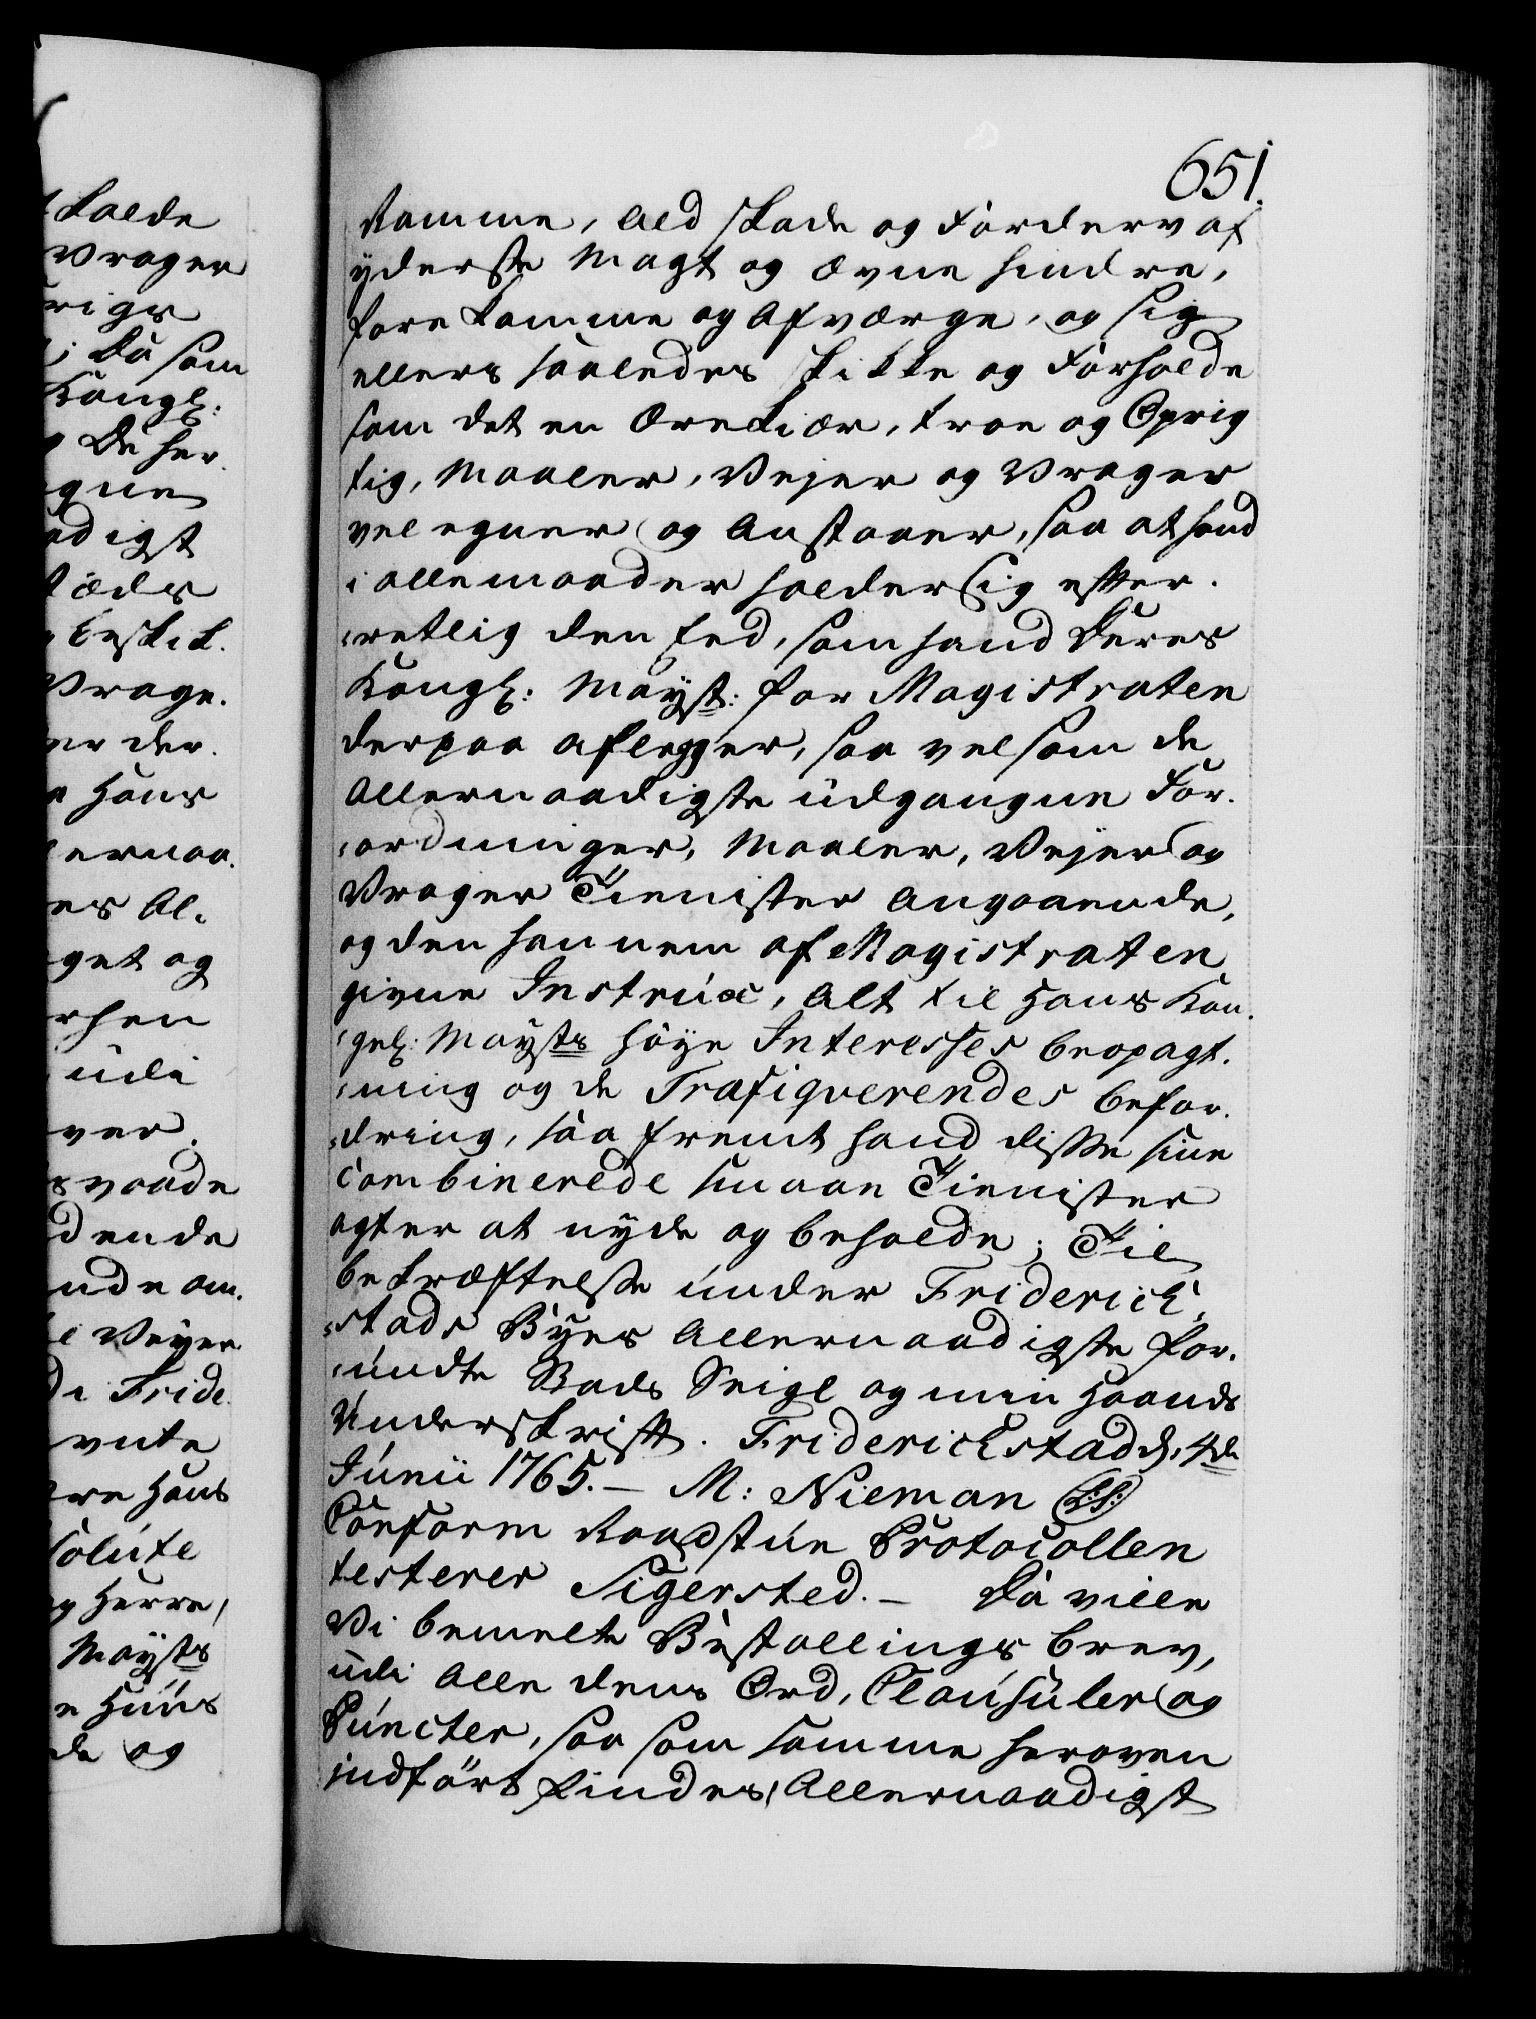 651.
Ramme, Ald Skade og Fordærv af
yderste Magt og Ævne hindre,
forekomme og Afværge, og sig
ellers saaledes skikke og Forholde
som det en Ærekiær, troe og Oprig
tig, Maaler, Vejer og Vrager
vel egner og Anstaaer, saa at hand
i allemaader holder sig efter-
rettlig den Eed, som hand Deres
Kongl: Mayst: for Magistraten
derpaa aflegger, saa vel som de
Allernaadigste udgangne For-
ordninger, Maaler, Vejer og
Vrager Tienister Angaaende,
og den hannem af Magistraten
givne Instrux, Alt til Hans Kon-
gel: Maysts höye Interesses beopagt-
ning og de Trafiqverendes befor-
dring, saa fremt hand disse sine
Combinerede smaae Tienister
agter at nyde og beholde; Til
bekræftelse under Friderich-
stads Byes Allernaadigste for-
undte Stads Seigl og min Haands
Underskrift. Friderichstad d. 4de
Junii 1765. — M: Nieman (L:S:)
Conform Raadstue Protocollen
testerer Sigersted. — Da ville
Vi bemelte Bestallings brev,
udi Alle dens Ord, Clausuler og
Puncter, saa som samme heroven
indfört findes, Allernaadigst
kalde
Vrager
Da som
Kongl:
Vrage-
Hans
es Al-
get og
udi
Vejer
Fride
Hans
solute
Herre,
Maysts
Huus
de og